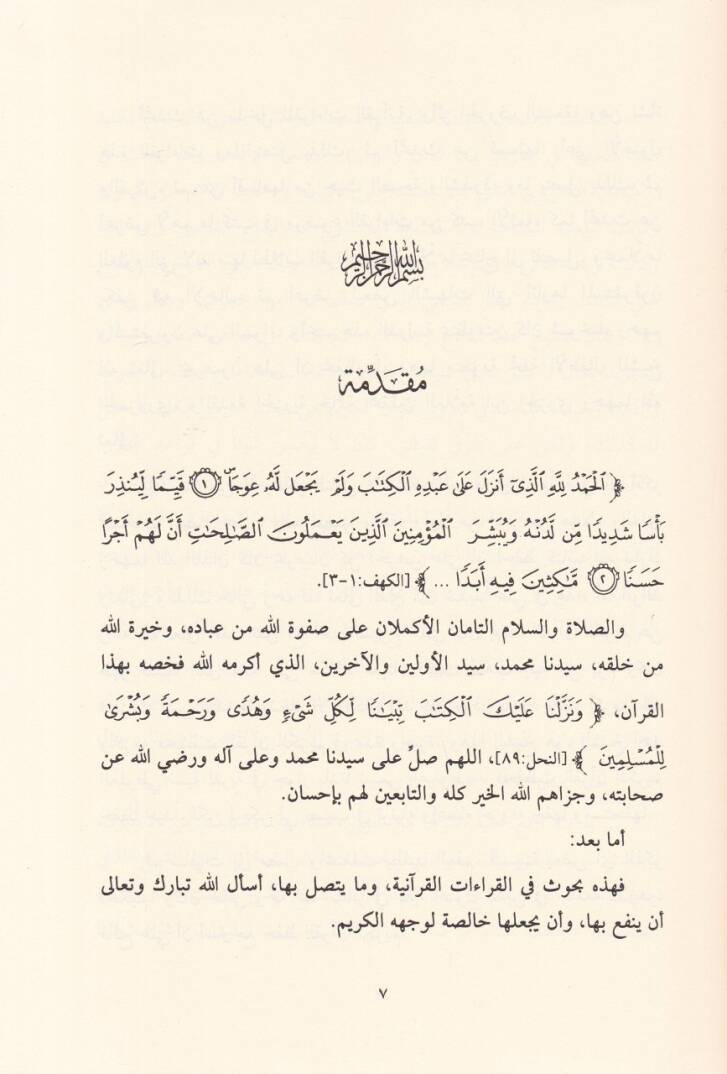 بسم الله الرحمن الرحيم
مُقَدِّمة
﴿ ٱلْحَمْدُ لِلَّهِ ٱلَّذِىٓ أَنزَلَ عَلَىٰ عَبْدِهِ ٱلْكِتَٰبَ وَلَمْ يَجْعَل لَّهُۥ عِوَجَاۜ ۝١ قَيِّمًا لِّيُنذِرَ
بَأْسًا شَدِيدًا مِّن لَّدُنْهُ وَيُبَشِّرَ ٱلْمُؤْمِنِينَ ٱلَّذِينَ يَعْمَلُونَ ٱلصَّٰلِحَٰتِ أَنَّ لَهُمْ أَجْرًا
حَسَنًا ۝٢ مَّٰكِثِينَ فِيهِ أَبَدًا ... ﴾ [الكهف:١-٣].
والصلاة والسلام التامان الأكملان على صفوة الله من عباده، وخيرة الله
من خلقه، سيدنا محمد، سيد الأولين والآخرين، الذي أكرمه الله فخصه بهذا
القرآن، ﴿ وَنَزَّلْنَا عَلَيْكَ ٱلْكِتَٰبَ تِبْيَٰنًا لِّكُلِّ شَىْءٍ وَهُدًى وَرَحْمَةً وَبُشْرَىٰ
لِلْمُسْلِمِينَ ﴾ [النحل:٨٩]، اللهم صلِّ على سيدنا محمد وعلى آله ورضي الله عن
صحابته، وجزاهم الله الخير كله والتابعين لهم بإحسان.
أما بعد:
فهذه بحوث في القراءات القرآنية، وما يتصل بها، أسأل الله تبارك وتعالى
أن ينفع بها، وأن يجعلها خالصة لوجهه الكريم.
٧